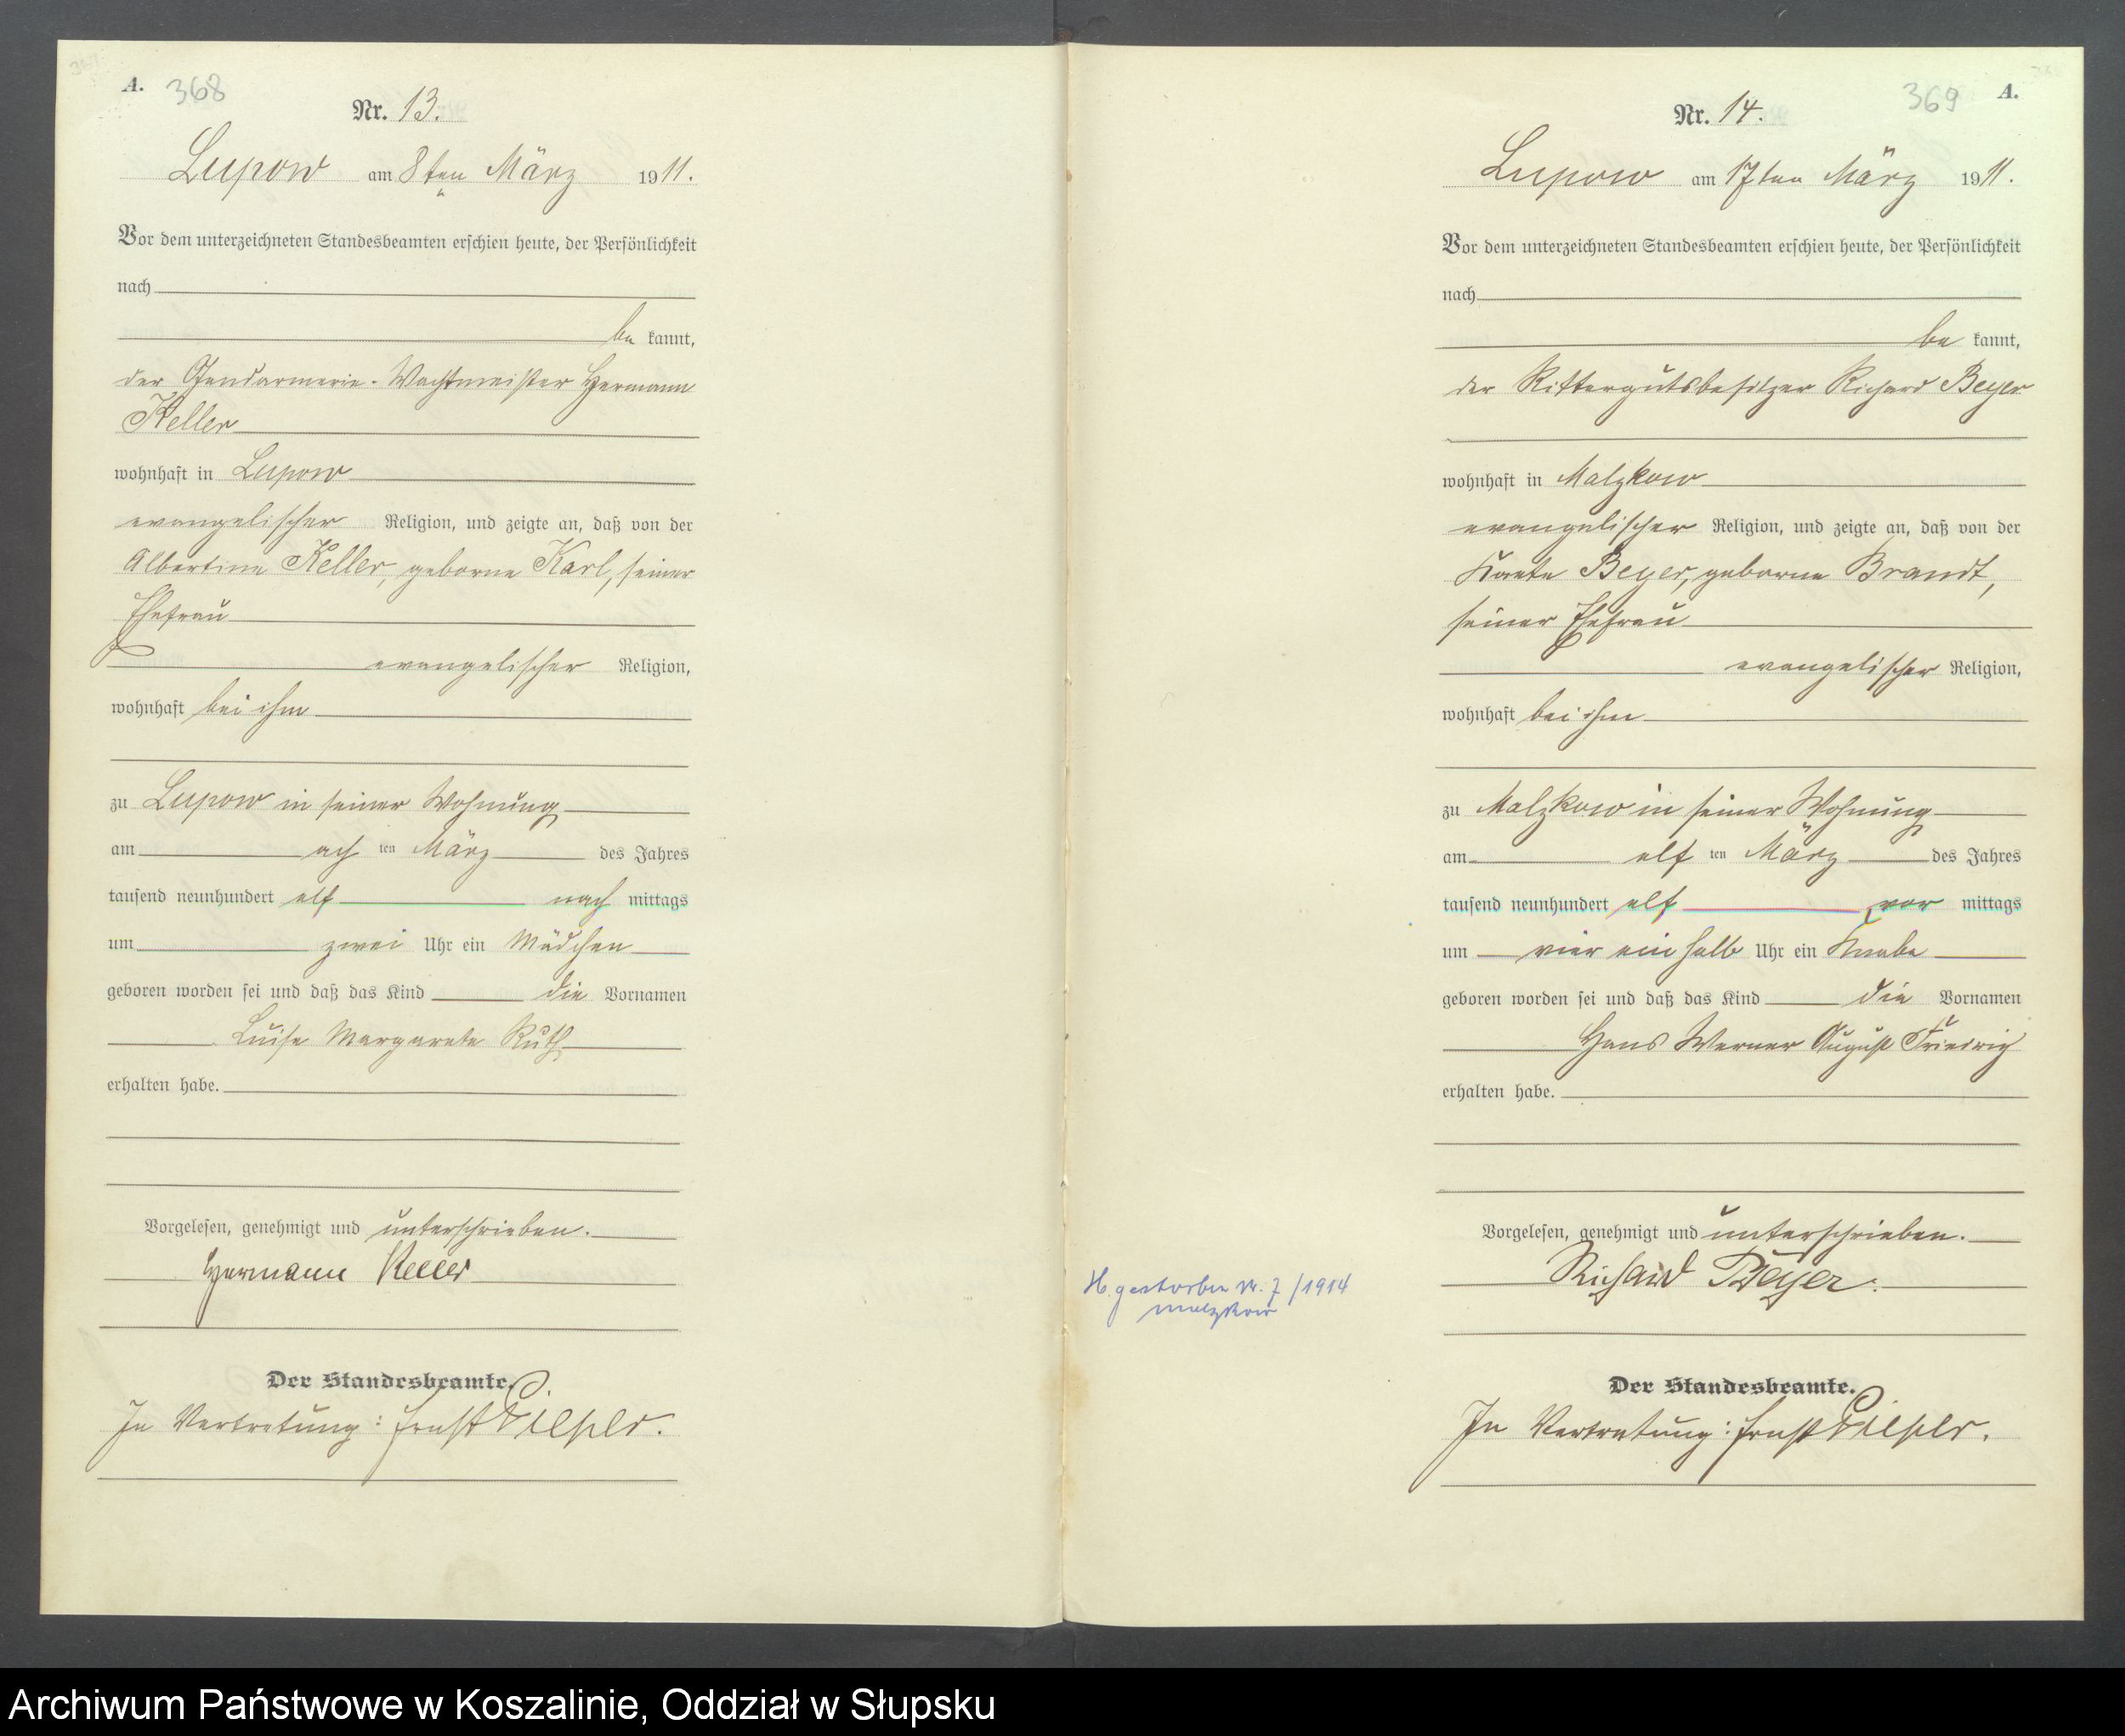 A. 368
Nr. 13.
Lupow am 8ten März 1911.
Vor dem unterzeichneten Standesbeamten erschien heute, der Persönlichkeit
nach
be kannt,
der Gendarmerie-Wachtmeister Hermann
Keller
wohnhaft in Lupow
evangelischer Religion, und zeigte an, daß von der
Albertine Keller, geborne Karl, seiner
Ehefrau
evangelischer Religion,
wohnhaft bei ihm
zu Lupow in seiner Wohnung
am ach ten März des Jahres
tausend neunhundert elf nach mittags
um zwei Uhr ein Mädchen
geboren worden sei und daß das Kind die Vornamen
Luise Margarete Ruth
erhalten habe.
Vorgelesen, genehmigt und unterschrieben.
Hermann Keller
Der Standesbeamte.
In Vertretung: Ernst Pieper.
369 A.
Nr. 14.
Lupow am 17ten März 1911.
Vor dem unterzeichneten Standesbeamten erschien heute, der Persönlichkeit
nach
be kannt,
der Rittergutsbesitzer Richard Beyer
wohnhaft in Malzkow
evangelischer Religion, und zeigte an, daß von der
Kaete Beyer, geborne Brandt,
seiner Ehefrau
evangelischer Religion,
wohnhaft bei ihm
zu Malzkow in seiner Wohnung
am elf ten März des Jahres
tausend neunhundert elf vor mittags
um vier ein halb Uhr ein Knabe
geboren worden sei und daß das Kind die Vornamen
Hans Werner August Friedrich
erhalten habe.
Vorgelesen, genehmigt und unterschrieben.
Richard Beyer.
H. gestorben Nr. 7/1914
Malzkow
Der Standesbeamte.
In Vertretung: Ernst Pieper.
Archiwum Państwowe w Koszalinie, Oddział w Słupsku